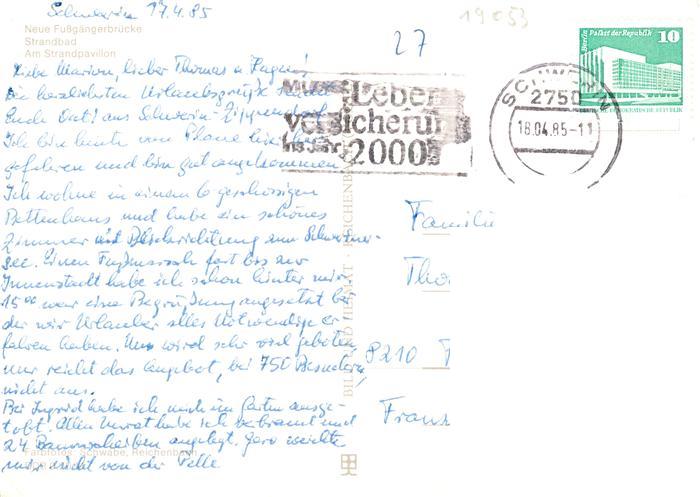 Schwerin 17.4.85
Neue Fußgängerbrücke
Strandbad
Am Strandpavillon
Liebe Marion, lieber Thomas u.
Die herzlichsten Urlaubsgrüße
Euch Oati aus Schwerin-Zippendorf
Ich bin heute von Plaue hier
gefahren und bin gut angekommen
Ich wohne in einem 6 geschossigen
Bettenhaus und habe ein schönes
Zimmer mit Blickrichtung zum Schweriner-
see. Einen Fußmarsch fast bis zur
Innenstadt habe ich schon hinter mir.
15⁰⁰ war eine Begrüßung angesetzt bei
der wir Urlauber alles Notwendige er-
fahren haben. Uns wird sehr viel geboten,
nur reicht das Angebot, bei 750 Besuchern,
nicht aus.
Bei Ingrid habe ich mich im Garten ausge-
tobt. Allen Unrat habe ich verbrannt und
24 Baumscheiben angelegt. Gero weichte
mir nicht von der Pelle
Farbfotos: Schwabe, Reichenbach
19053
27
Leben
versicherung
2000
SCHWERIN
2750
18.04.85-11
Berlin Palast der Republik
10
BILD UND HEIMAT REICHENBACH
Familie
Tho
8210
Fran